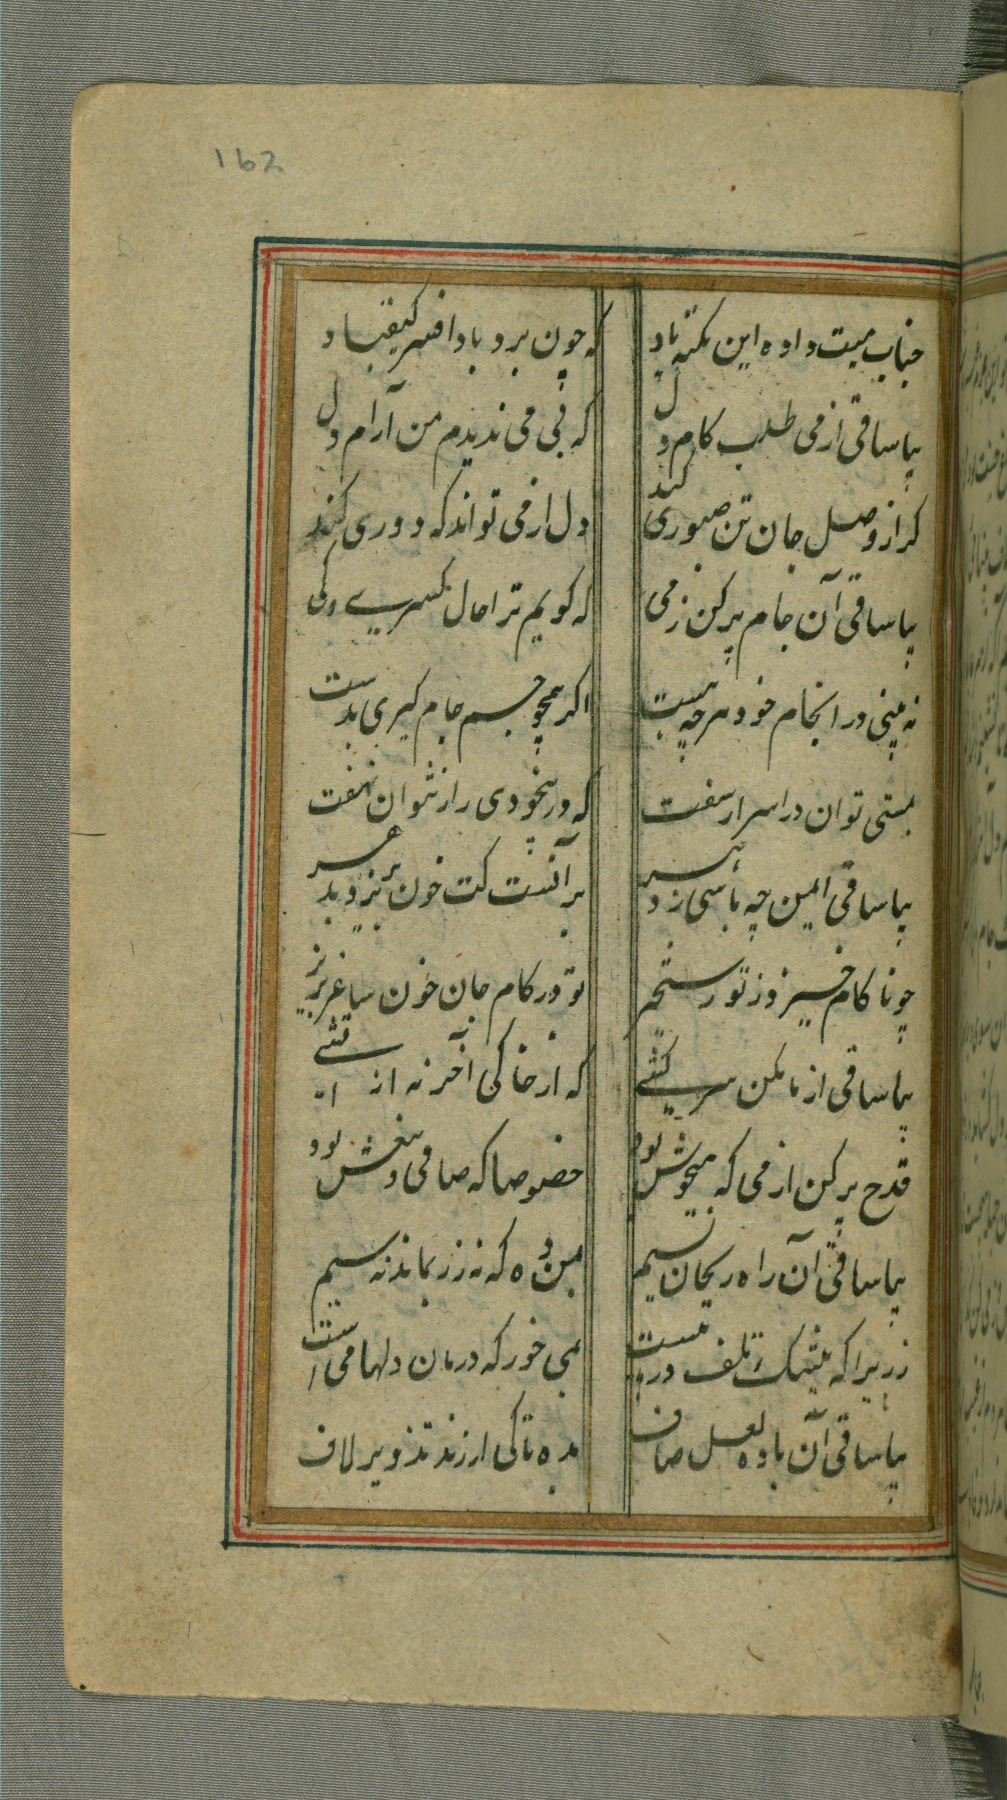 162
حباب میت داده این نکته یاد که چون برد باد افسر کیقباد
بیا ساقی از می طلب کام دل که بی می ندیدم من آرام دل
کر از وصل جان تن صبوری کند دل از می تواند که دوری کند
بیا ساقی آن جام پر کن ز می که کویم ترا حال کسری و کی
نه بینی در انجام خود هرچه هست اکر همچو جم جام کیری بدست
بمستی توان در اسرار سفت که در بیخودی راز نتوان نهفت
بیا ساقی ایمن چه باشی ز دهر بر آنست کت خون بریزد بقهر
چو ناکام خیزد ز تو رستخیز تو در کام جان خون ساغر بریز
بیا ساقی از ما مکن سرکشی که از خاکی آخر نه از آتشی
قدح پر کن از می که میخوش بود خصوصا که صافی و بیغش بود
بیا ساقی آن راح ریحان نسیم بمن ده که نه زر بماند نه سیم
زریرا که بیشک تلف در پیست بمی خور که درمان دلها می است
بیا ساقی آن باده لعل صاف بده تا کی از زند تزویر لاف